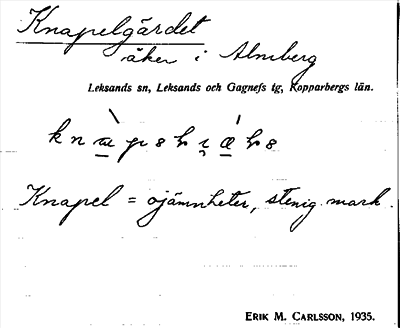 Knapelgärdet
åker i Almberg
Leksands sn, Leksands och Gagnefs tg, Kopparbergs län.
Knapel = ojämnheter, stenig mark.
ERIK M. CARLSSON, 1935.